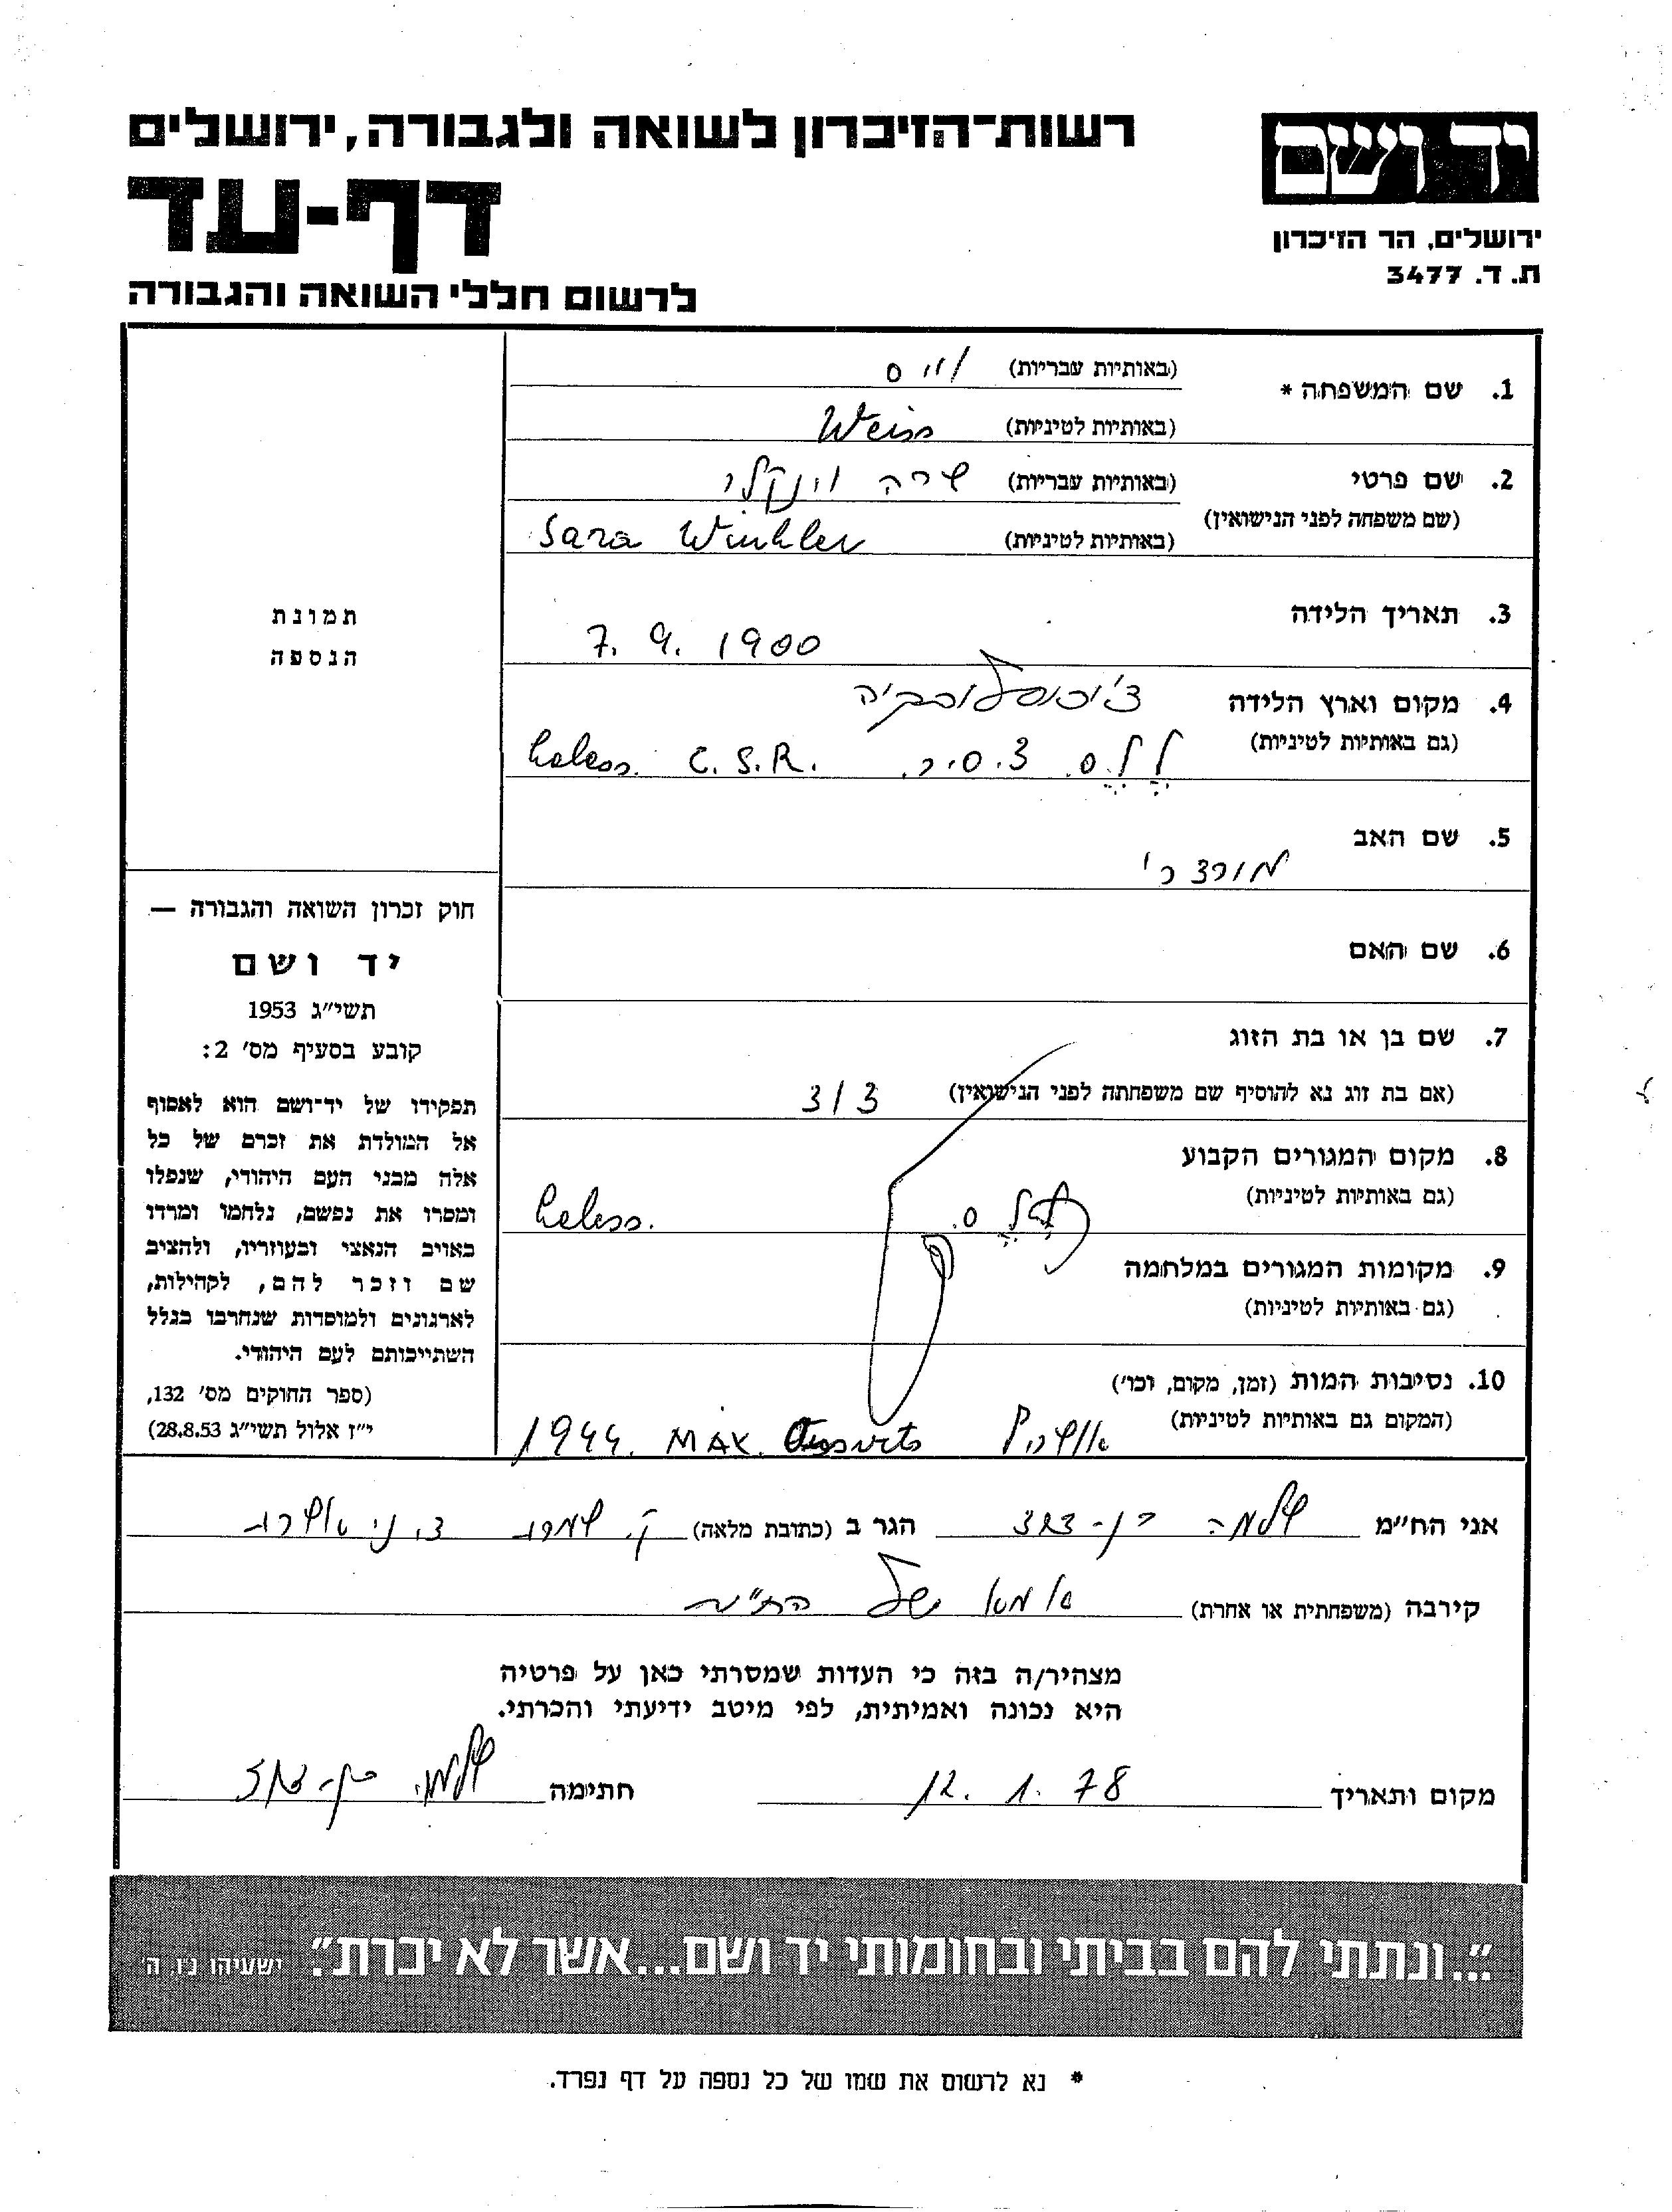 רשות־הזיכרון לשואה ולגבורה, ירושלים
דף-עד
לרשום חללי השואה והגבורה
יד ושם
ירושלים, הר הזיכרון
ת. ד. 3477
1. שם המשפחה * (באותיות עבריות) וייס
(באותיות לטיניות) Weiss
2. שם פרטי (באותיות עבריות) שרה וינקלר
(שם משפחה לפני הנישואין) (באותיות לטיניות) Sara Winkler
3. תאריך הלידה 7. 9. 1900
4. מקום וארץ הלידה צ'וכוסלובקיה
(גם באותיות לטיניות) C. S. R. צ.ס.ר.
5. שם האב
6. שם האם
7. שם בן או בת הזוג
(אם בת זוג נא להוסיף שם משפחתה לפני הנישואין)
8. מקום המגורים הקבוע
(גם באותיות לטיניות)
9. מקומות המגורים במלחמה
(גם באותיות לטיניות)
10. נסיבות המות (זמן, מקום, וכו')
(המקום גם באותיות לטיניות) 1944. MAY.
תמונת
הנספה
חוק זכרון השואה והגבורה —
יד ושם
תשי״ג 1953
קובע בסעיף מס' 2:
תפקידו של יד־ושם הוא לאסוף
אל המולדת את זכרם של כל
אלה מבני העם היהודי, שנפלו
ומסרו את נפשם, נלחמו ומרדו
באויב הנאצי ובעוזריו, ולהציב
שם וזכר להם, לקהילות,
לארגונים ולמוסדות שנחרבו בגלל
השתייכותם לעם היהודי.
(ספר החוקים מס' 132,
י״ז אלול תשי״ג 28.8.53)
אני הח״מ שלמה הגר ב (כתובת מלאה) ק. שמרת
קירבה (משפחתית או אחרת) אמא של הח״מ
מצהיר/ה בזה כי העדות שמסרתי כאן על פרטיה
היא נכונה ואמיתית, לפי מיטב ידיעתי והכרתי.
מקום ותאריך 12. 1. 78 חתימה
״...ונתתי להם בביתי ובחומותי יד ושם...אשר לא יכרת״. ישעיהו נ״ו, ה'
* נא לרשום את שמו של כל נספה על דף נפרד.